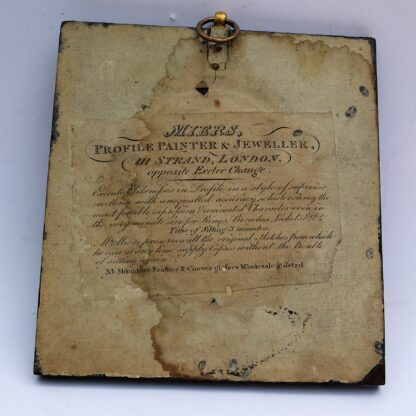 MIERS,
PROFILE PAINTER & JEWELLER,
111 STRAND, LONDON,
opposite Exeter Change.
Executes Likenesses in Profile in a style of superior
excellence with unequalled accuracy, which convey the
most forcible expression & animated Character even in
the very minute size for Rings, Broaches, Lockets &c &c
Time of Sitting 3 minutes.
Mr Miers preserves all the original Sketches from which
he can at any time supply Copies without the trouble
of sitting again.
NB. Miniature Frames & Convex glasses Wholesale & Retail.